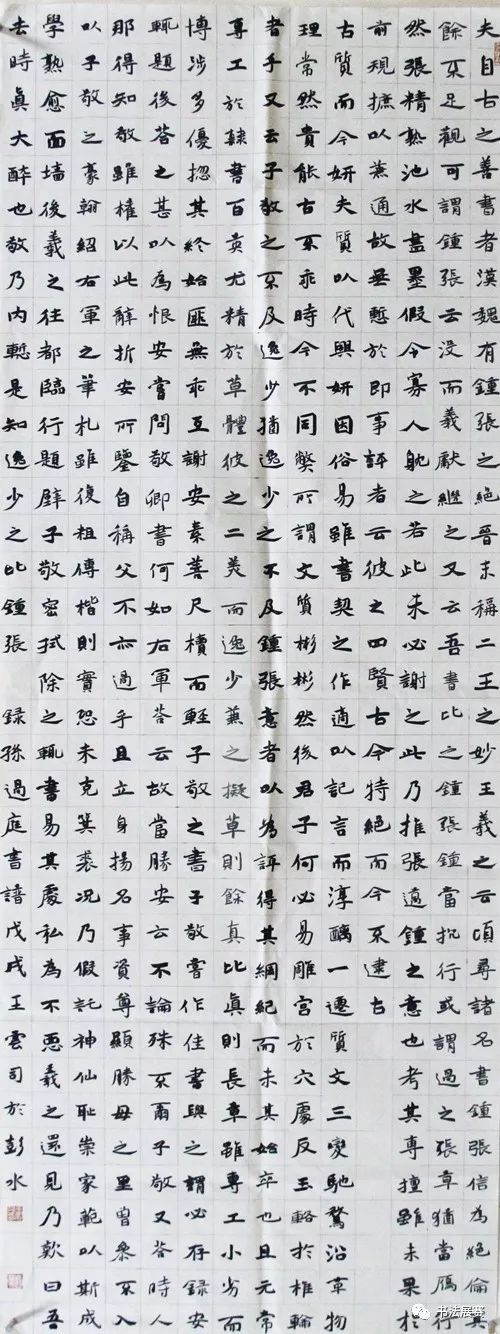 夫自古之善書者漢魏有鍾張之絕晉末稱二王之妙王羲之云頃尋諸名書鍾張信為絕倫其
餘不足觀可謂鍾張云沒而羲獻繼之又云吾書比之鍾張鍾當抗行或謂過之張草猶當鴈行
然張精熟池水盡墨假令寡人耽之若此未必謝之此乃推張邁鍾之意也考其專擅雖未果於
前規摭以蕪通故無慙於即事評者云彼之四賢古今特絕而今不逮古
古質而今妍夫質以代興妍因俗易雖書契之作適以記言而淳醨一遷質文三變馳騖沿革物
理常然貴能古不乖時今不同弊所謂文質彬彬然後君子何必易雕宮於穴處反玉輅於椎輪
者乎又云子敬之不及逸少猶逸少之不及鍾張意者以為評得其綱紀而未其始卒也且元常
專工於隸書百英尤精於草體彼之二美而逸少兼之擬草則餘真比真則長章雖專工小劣而
博涉多優揔其終始匪無乖互謝安素善尺櫝而輕子敬之書子敬嘗作佳書與之謂必存錄安
輒題後答之甚以為恨安嘗問敬卿書何如右軍答云故當勝安云不論殊不爾子敬又答時人
那得知敬雖權以此辭折安所鑒自稱父不亦過乎且立身揚名事資尊顯勝母之里曾參不入
以子敬之豪翰紹右軍之筆札雖復粗傳楷則實恐未克箕裘況乃假託神仙恥崇家範以斯成
學孰愈面墻後羲之往都臨行題壁子敬密拭除之輒書易其處私為不惡羲之還見乃歎曰吾
去時真大醉也敬乃內慙是知逸少之比鍾張 錄孫過庭書譜戊戌王雲司於彭水
书法展赛